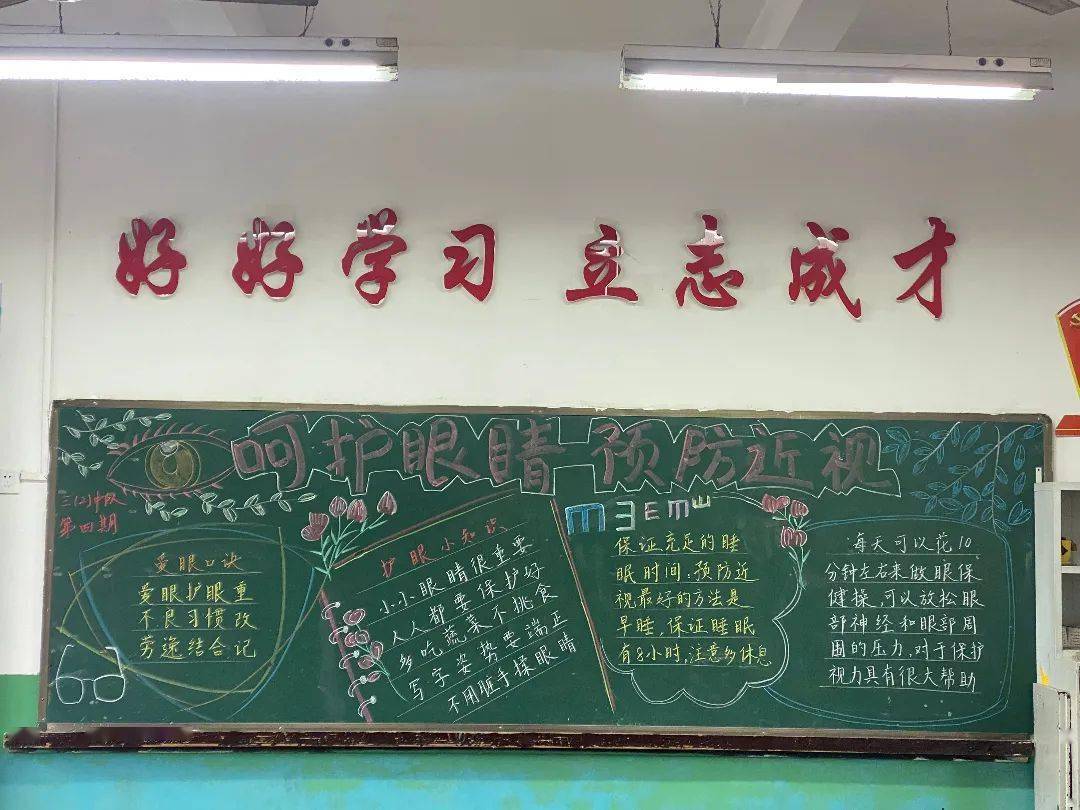 好好学习 立志成才
呵护眼睛 预防近视
三(2)中队
第四期
爱眼口诀
爱眼护眼重
不良习惯改
劳逸结合记
护眼小知识
小小眼睛很重要
人人都要保护好
多吃蔬菜不挑食
写字姿势要端正
不用脏手揉眼睛
保证充足的睡
眠时间,预防近
视最好的方法是
早睡,保证睡眠
有8小时,注意多休息
每天可以花10
分钟左右来做眼保
健操,可以放松眼
部神经和眼部周
围的压力,对于保护
视力具有很大帮助